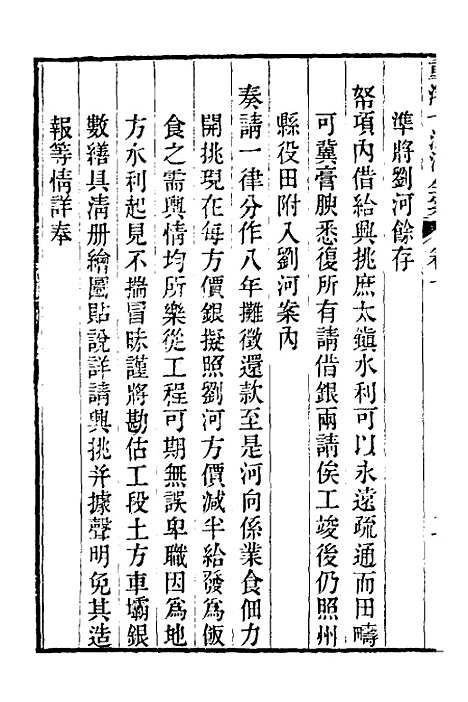 準將劉河餘存
帑項內借給興挑庶太鎮水利可以永遠疏通而田疇
可冀膏腴悉復所有請借銀兩請俟工竣後仍照州
縣役田附入劉河案內
奏請一律分作八年攤徵還款至是河向係業食佃力
開挑現在每方價銀擬照劉河方價減半給發爲飯
食之需輿情均所樂從工程可期無誤卑職因爲地
方水利起見不揣冒昧謹將勘估工段土方車壩銀
數繕具清册繪圖貼說詳請興挑并據聲明免其造
報等情詳奉